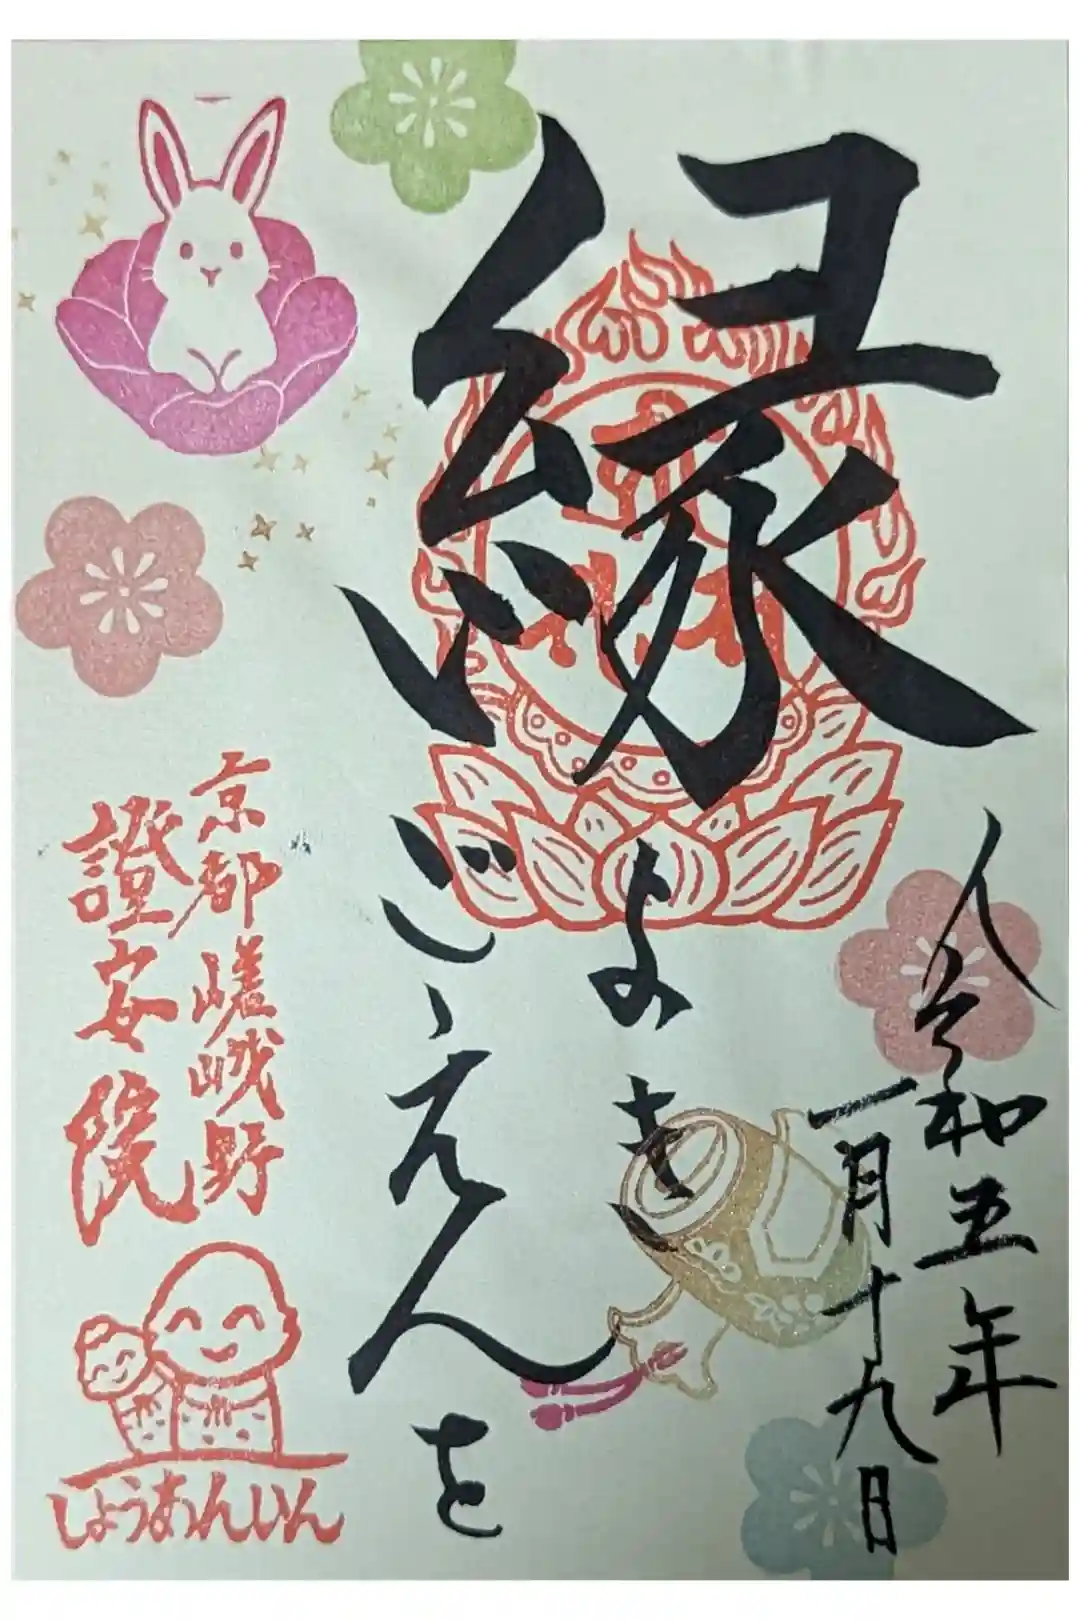 令和五年
一月十九日
縁
よき
ごえんを
京都嵯峨野
證安院
しょうあんいん